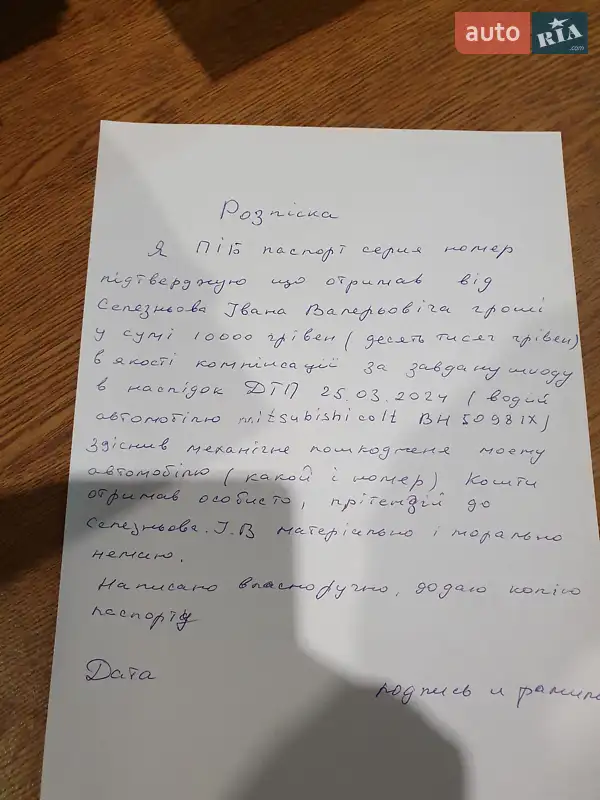 auto RIA .com
Розпіска
Я ПІБ паспорт серия номер
підтверджую що отримав від
Селезньова Івана Валерьовіча гроші
у сумі 10000 грівен (десять тисяч грівен)
в якості компінсації за завдану шкоду
в наспідок ДТП 25.03.2024 (водий
автомотілю mitsubishi colt ВН 5098 ІХ)
Здіснив механічне пошкоджене моему
автомобілю (какой і номер) Кошти
отримав особисто, прітензій до
Селезньова.І.В матеріально і морально
немаю.
Написано власноручно, додаю копію
паспорту
Дата
подпись и фамили